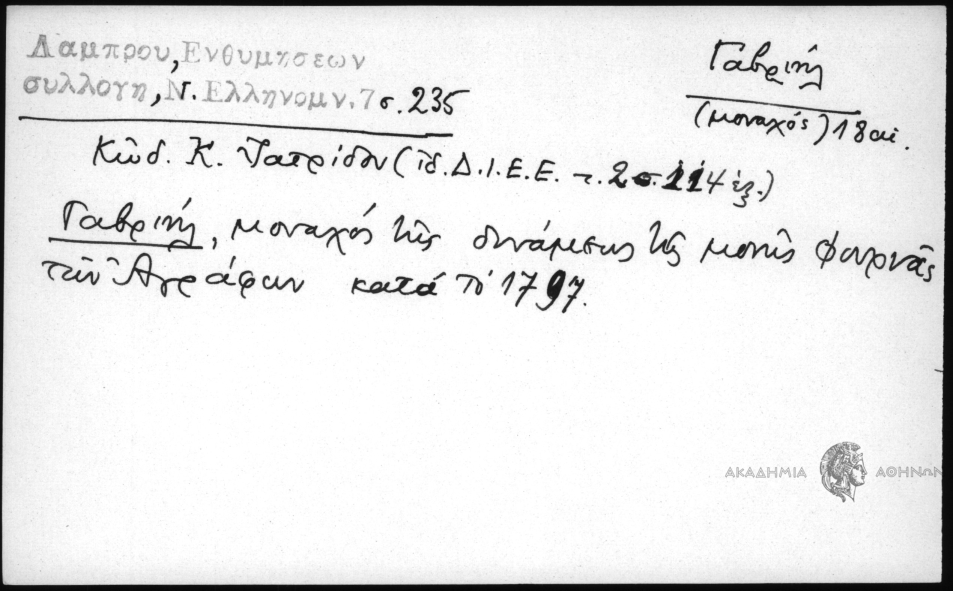 Λαμπρου, Ενθυμησεων
συλλογη, Ν. Ελληνομν. 7 σ. 235
Γαβριήλ
(μοναχός) 18 αἰ.
Κῶδ. Κ. Ἰατρίδου (ἰδ. Δ.Ι.Ε.Ε. τ. 2 σ. 114 ἑξ.)
Γαβριήλ, μοναχός τῆς δυνάμεως τῆς μονῆς Φουρνᾶς
τῶν Ἀγράφων κατά τό 1797.
ΑΚΑΔΗΜΙΑ ΑΘΗΝΩΝ